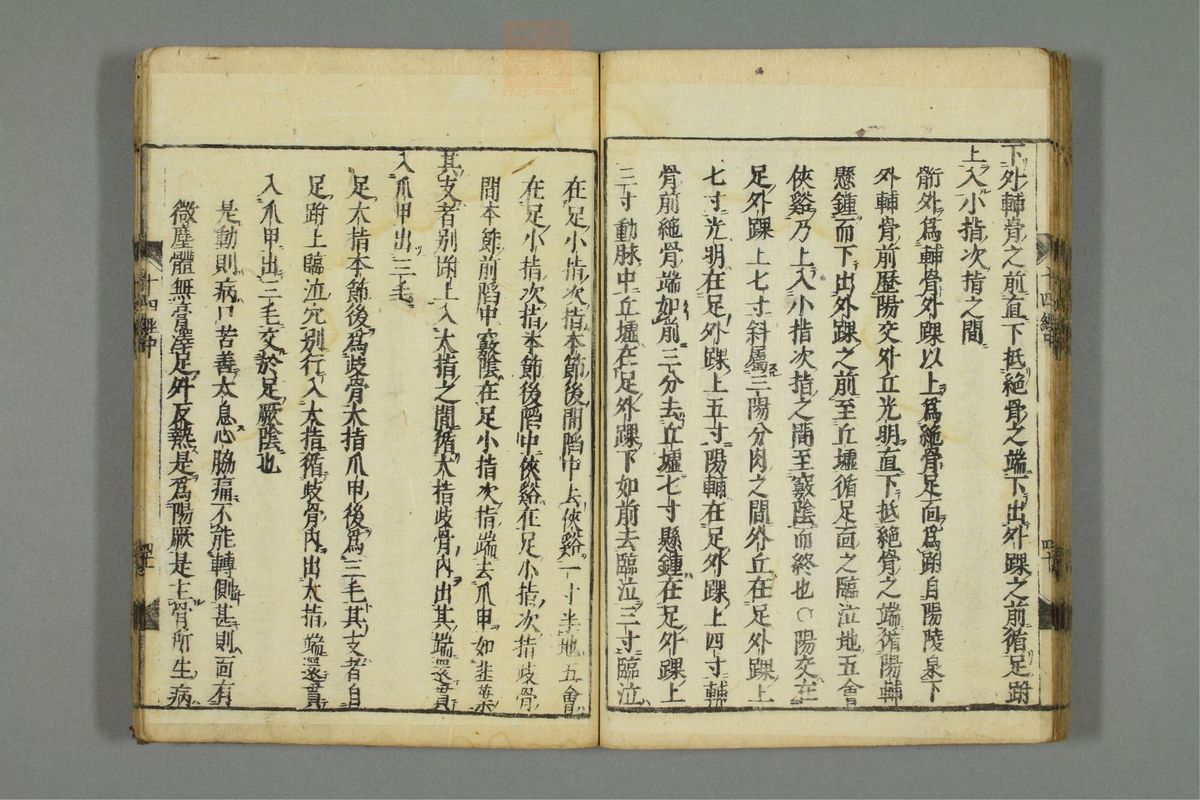 下外輔骨之前直下抵絶骨之端下出外踝之前循足跗
上入小指次指之間
䯒外爲輔骨外踝以上爲絶骨足面爲跗自陽陵泉下
外輔骨前歷陽交外丘光明直下抵絶骨之端循陽輔
懸鍾而下出外踝之前至丘墟循足面之臨泣地五會
俠谿乃上入小指次指之間至竅陰而終也○陽交在
足外踝上七寸斜屬三陽分肉之間外丘在足外踝上
七寸光明在足外踝上五寸陽輔在足外踝上四寸輔
骨前絶骨端如前三分去丘墟七寸懸鍾在足外踝上
三寸動脉中丘墟在足外踝下如前去臨泣三寸臨泣
十四經中
四十
在足小指次指本節後間陷中去俠谿一寸半地五會
在足小指次指本節後陷中俠谿在足小指次指歧骨
間本節前陷中竅陰在足小指次指端去爪甲如韭葉
其支者別跗上入大指之間循大指歧骨内出其端還貫
入爪甲出三毛
足大指本節後爲歧骨大指爪甲後爲三毛其支者自
足跗上臨泣穴別行入大指循歧骨内出大指端還貫
入爪甲出三毛交於足厥陰也
是動則病口苦善太息心脇痛不能轉側甚則面有
微塵體無膏澤足外反熱是爲陽厥是主骨所生病
十四經中